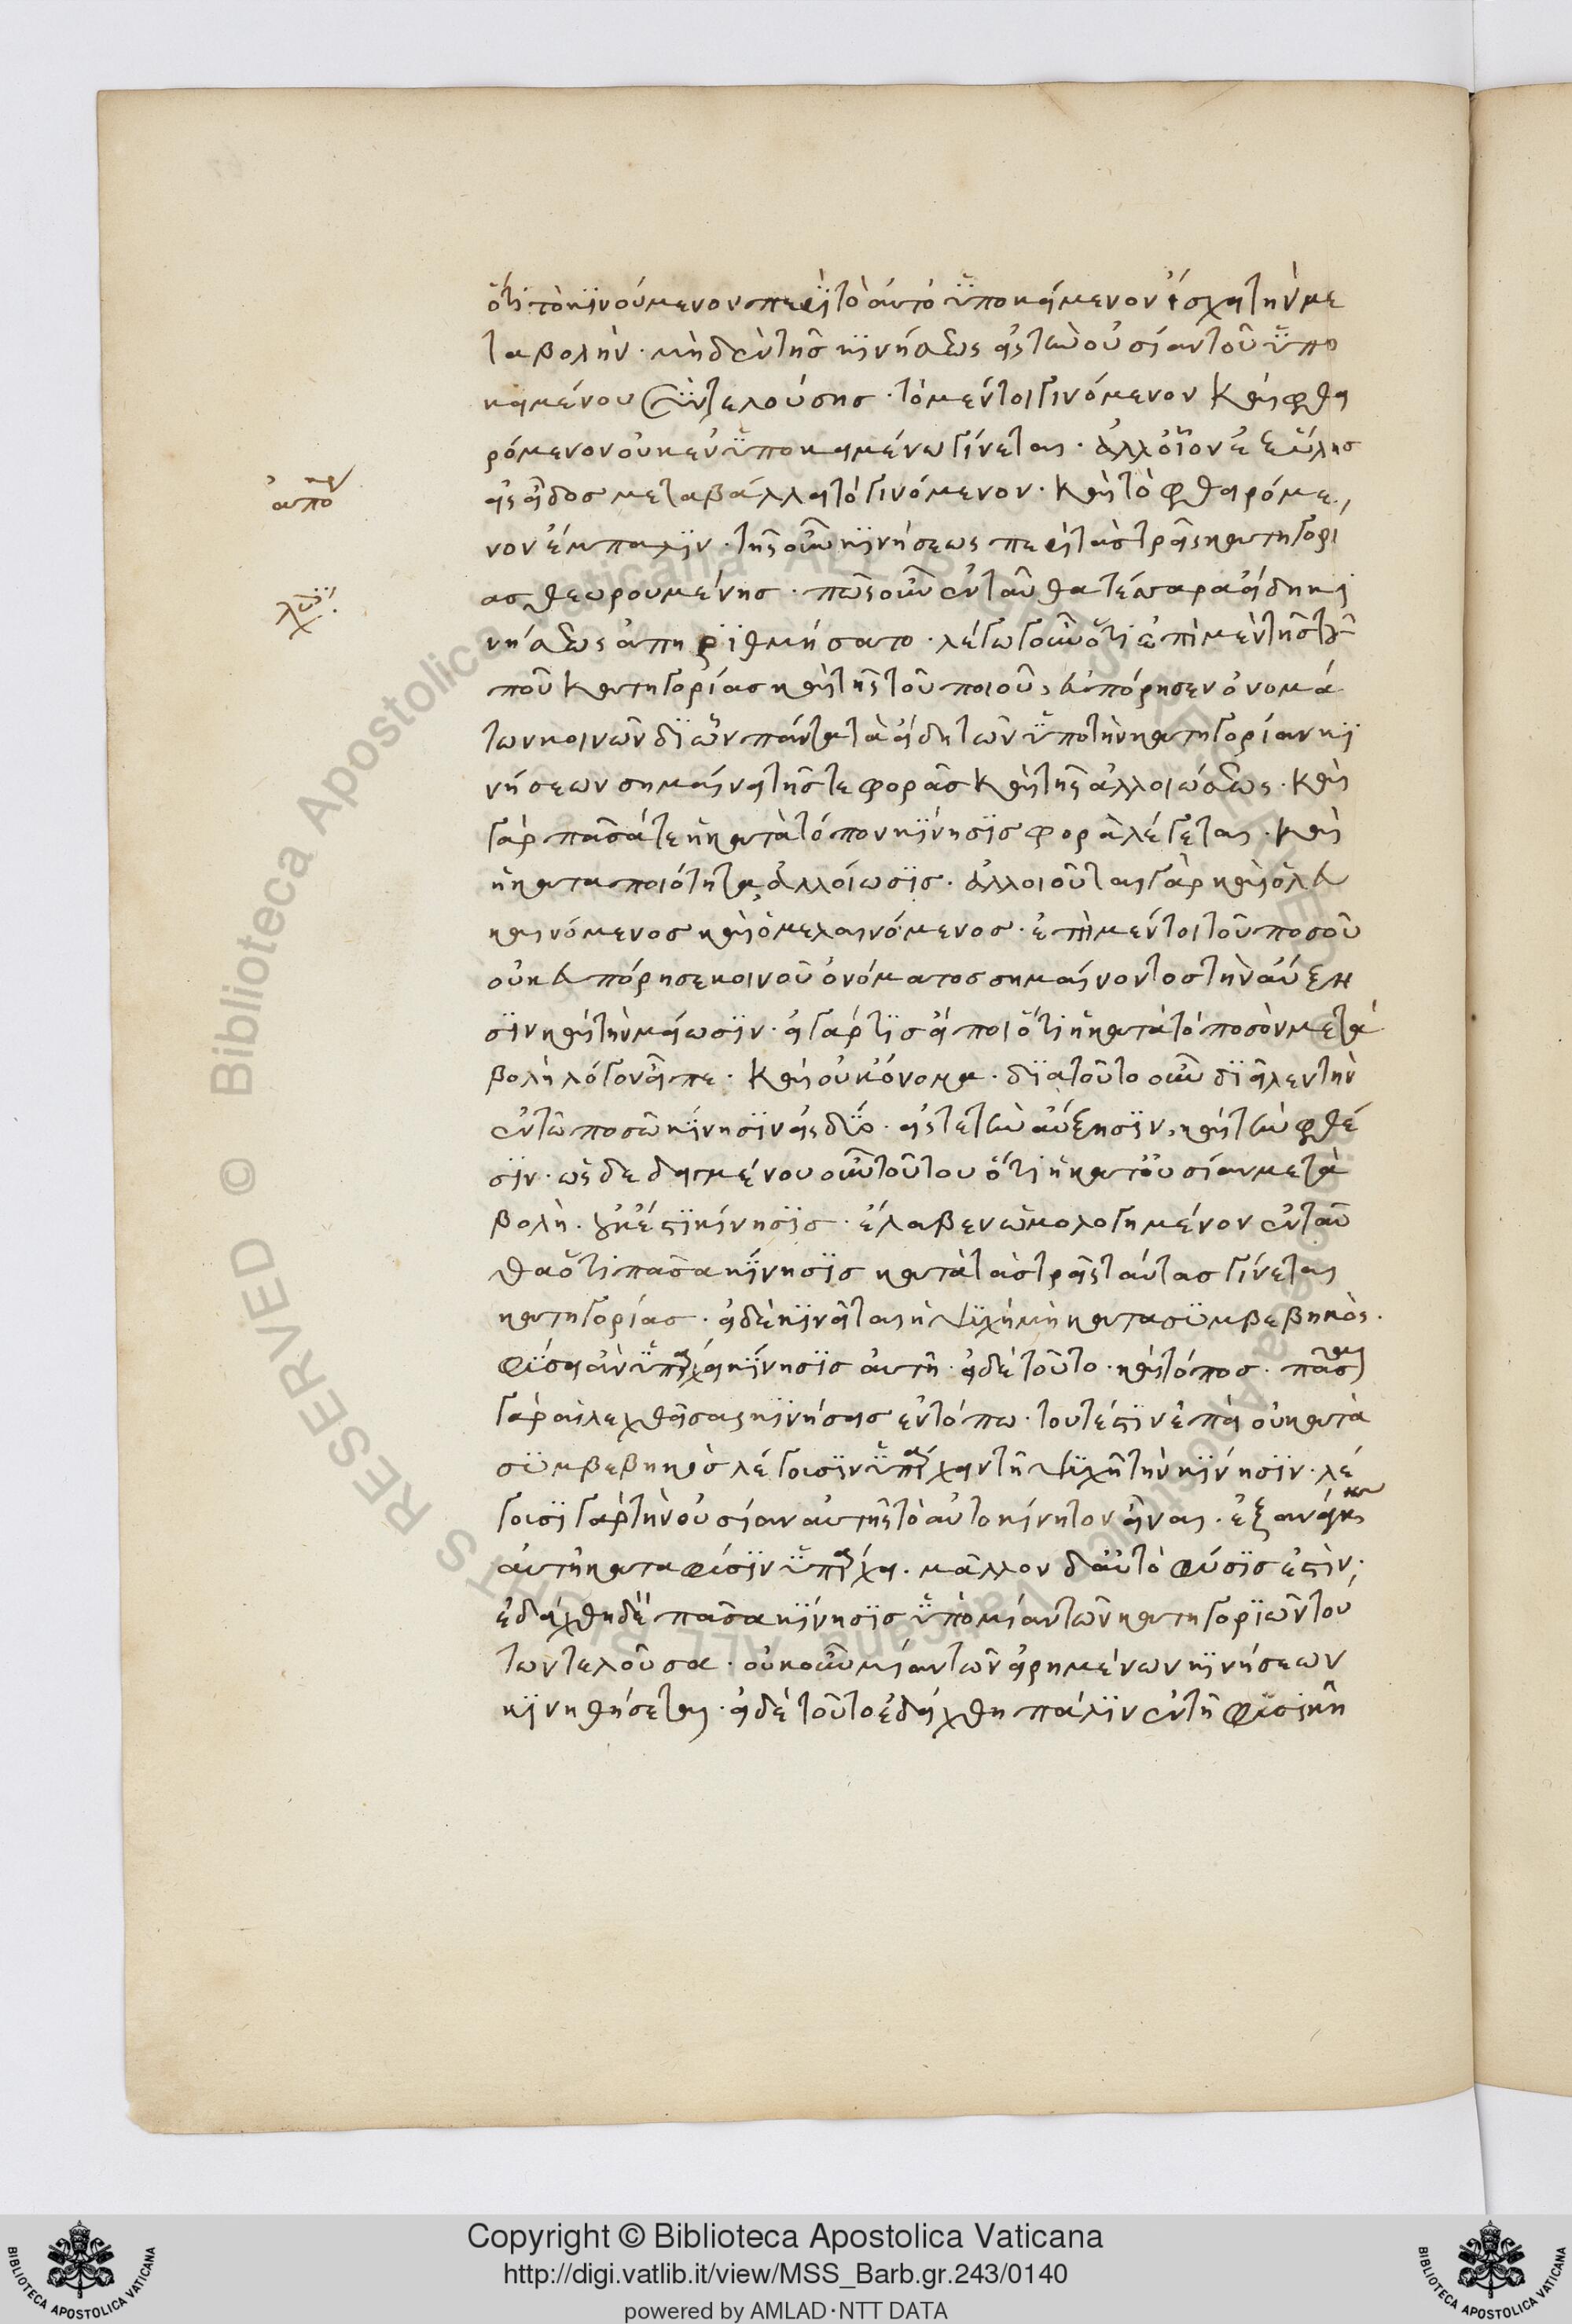 ὅτι τὸ κινούμενον περὶ τὸ αὐτὸ ὑποκείμενον ἴσχει τὴν με
ταβολήν. μὴδὲν τῆς κινήσεως εἰς τὴν οὐσίαν τοῦ ὑπο
κειμένου συντελούσης. τὸ μέντοι γινόμενον καὶ φθει
ρόμενον οὐκ ἐν ὑποκειμένω γίνεται. ἀλλ' οἷον ἐξ ὕλης
εἰς εἶδος μεταβάλλει τὸ γινόμενον. καὶ τὸ φθειρόμε
ἀπο
νον ἔμπαλιν. τῆς οὖν κινήσεως περὶ τὰς τρεῖς κατηγορί
ας θεωρουμένης. πῶς οὖν ἐνταῦθα τέσσαρα εἴδη κι
λύσις
νήσεως ἀπηριθμήσατο. λέγω γοῦν ὅτι ἐπὶ μὲν τῆς τοῦ
ποῦ κατηγορίας καὶ τῆς τοῦ ποιοῦ, εὐπόρησεν ὀνομά
των κοινῶν δι' ὧν πάντα τὰ εἴδη τῶν ὑπὸ τὴν κατηγορίαν κι
νήσεων σημαίνει τῆς τε φορᾶς καὶ τῆς ἀλλοιώσεως. καὶ
γὰρ πᾶσά τε ἡ κατὰ τόπον κίνησις φορὰ λέγεται. καὶ
ἡ κατὰ ποιότητα, ἀλλοίωσις. ἀλλοιοῦται γὰρ καὶ ὁ λευ
καινόμενος καὶ ὁ μελαινόμενος. ἐπὶ μέντοι τοῦ ποσοῦ
οὐκ εὐπόρησε κοινοῦ ὀνόματος σημαίνοντος τὴν αὔξη
σιν καὶ τὴν μείωσιν. εἰ γάρ τις εἴποι ὅτι ἡ κατὰ τὸ ποσὸν μετα
βολὴ λόγον εἶπε. καὶ οὐκ ὄνομα. διατοῦτο οὖν διεῖλεν τὴν
ἐν τῶ ποσῶ κίνησιν εἰς δύο. εἴς τε τὴν αὔξησιν, καὶ τὴν φθί
σιν. ὡς δεδειγμένου οὖν τούτου ὅτι ἡ κατ' οὐσίαν μετα
βολὴ. οὐκ ἔστι κίνησις. ἔλαβεν ὡμολογημένον ἐνταῦ
θα ὅτι πᾶσα κίνησις κατὰ τὰς τρεῖς ταύτας γίνεται
κατηγορίας. εἰ δὲ κινεῖται ἡ ψυχὴ μὴ κατὰ συμβεβηκὸς.
φύσει ἂν ὑπάρχει κίνησις αὐτῆ. εἰ δὲ τοῦτο. καὶ τόπος. πᾶσαι
γὰρ αἱ λεχθεῖσαι κινήσεις ἐν τόπω. τουτέστιν ἐπεὶ οὐ κατὰ
συμβεβηκὸς λέγουσιν ὑπάρχειν τῆ ψυχῆ τὴν κίνησιν. λέ
γουσι γὰρ τὴν οὐσίαν αὐτῆς τὸ αὐτοκίνητον εἶναι. ἐξ ἀνάγκης
αὐτῆ κατὰ φύσιν ὑπάρχει. μᾶλλον δ' αὐτὸ φύσις ἐστίν.
ἐδείχθη δὲ πᾶσα κίνησις ὑπὸ μίαν τῶν κατηγοριῶν τού
των τελοῦσα. οὐκοῦν μίαν τῶν εἰρημένων κινήσεων
κινηθήσεται. εἰ δὲ τοῦτο ἐδείχθη πάλιν ἐν τῆ φυσικῆ
Copyright © Biblioteca Apostolica Vaticana
http://digi.vatlib.it/view/MSS_Barb.gr.243/0140
powered by AMLAD·NTT DATA
© Biblioteca Apostolica Vaticana ALL RIGHTS RESERVED
BIBLIOTECA APOSTOLICA VATICANA
BIBLIOTECA APOSTOLICA VATICANA